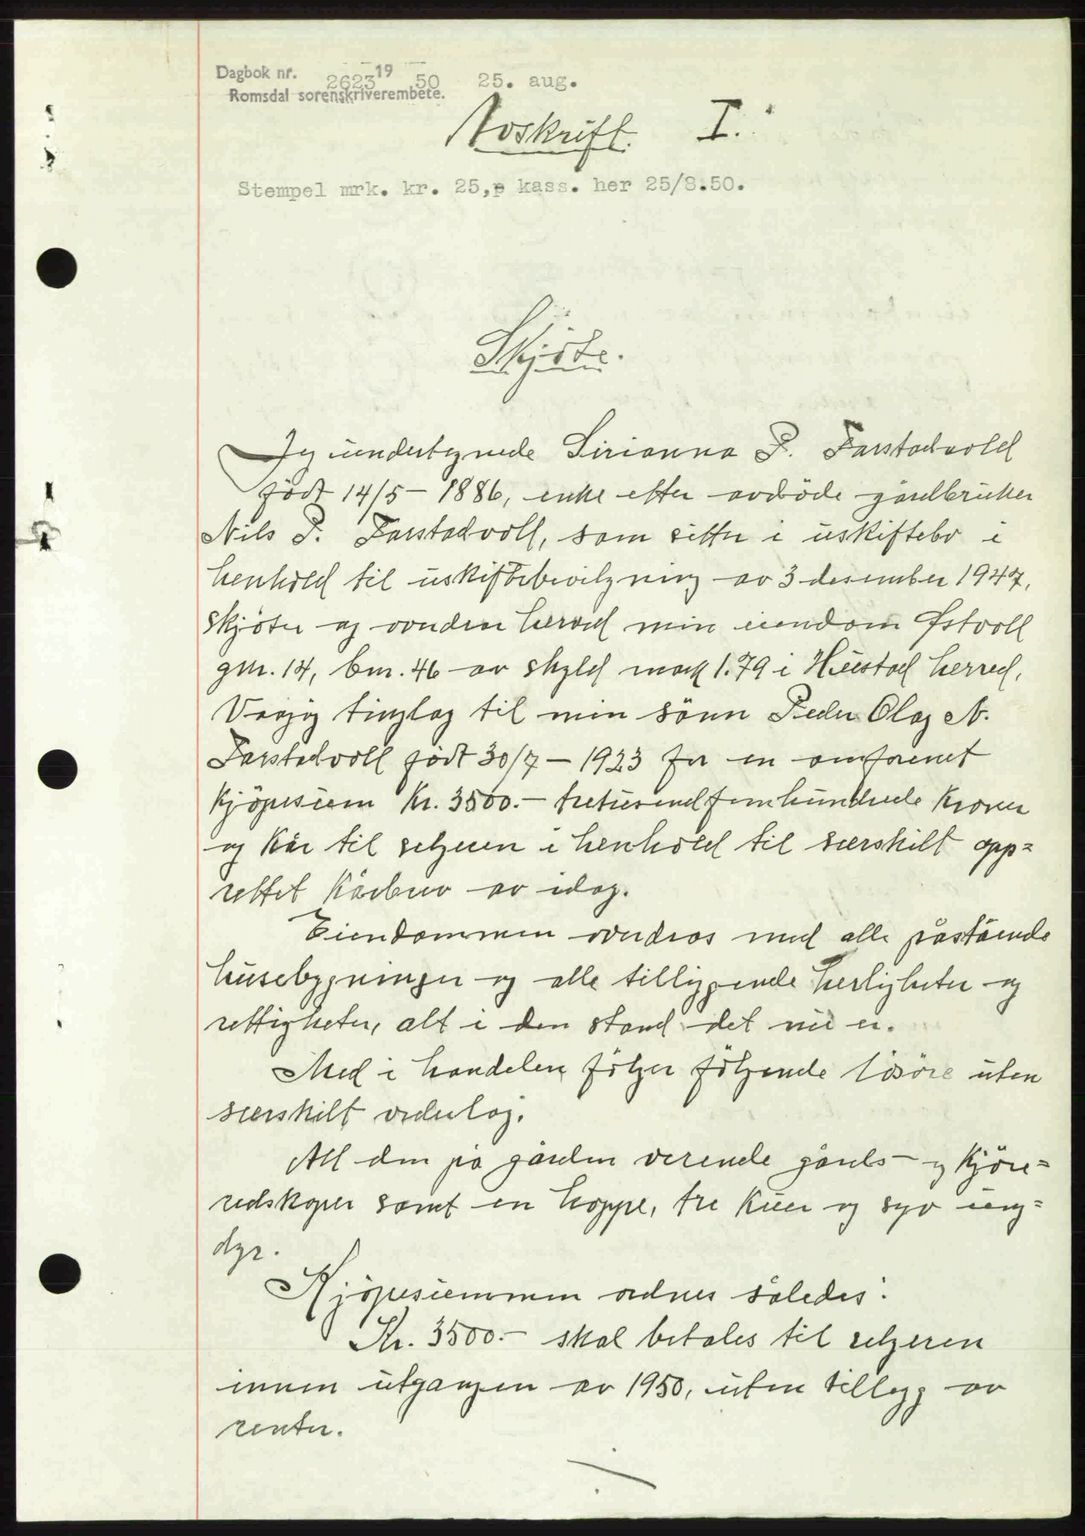 Dagbok nr. 2623 19 50 25. aug.
Romsdal sorenskriverembete.
Avskrift. I.
Stempel mrk. kr. 25,- kass. her 25/8.50.
Skjöte.
Jeg undertegnede Sirianna P. Farstadvold
født 14/5 - 1886, enke etter avdöde gårdbruker
Nils P. Farstadvoll, som sitter i uskiftebo i
henhold til uskiftebevilgning av 3 desember 1947,
skjöter og overdrar herved min eiendom Østvoll
gnr. 14, bnr. 46 av skyld mark 1.79 i Hustad herred,
Vågøy tinglag til min sönn Peder Olag N.
Farstadvoll født 30/7 - 1923 for en omforenet
kjöpesum kr. 3500.- tretusendfemhundrede kroner
og kår til selgeren i henhold til særskilt opp=
rettet kårbrev av idag.
Eiendommen overdras med alle påstående
husebygninger og alle tilliggende herligheter og
rettigheter, alt i den stand det nu er.
Med i handelen fölger fölgende lösöre uten
særskilt vederlag.
All den på gården verende gårds- og kjöre=
redskaper samt en hoppe, tre kuer og syv ung=
dyr.
Kjöpesummen ordnes således:
Kr. 3500.- skal betales til selgeren
innen utgangen av 1950, uten tillegg av
renter.